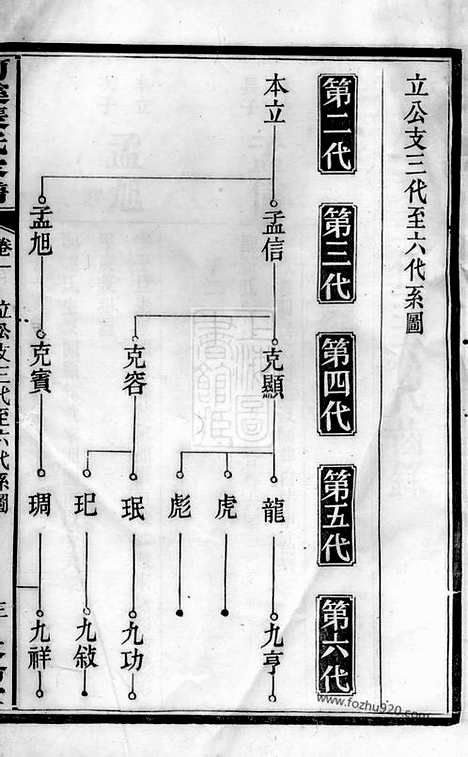 立公支三代至六代系圖
第二代
第三代
第四代
第五代
第六代
本立
孟信
孟旭
克顯
克容
克賓
龍
虎
彪
珉
玘
琱
九亨
九功
九敍
九祥
卷一
立公支三代至六代系圖
三
www.fozhu920.com